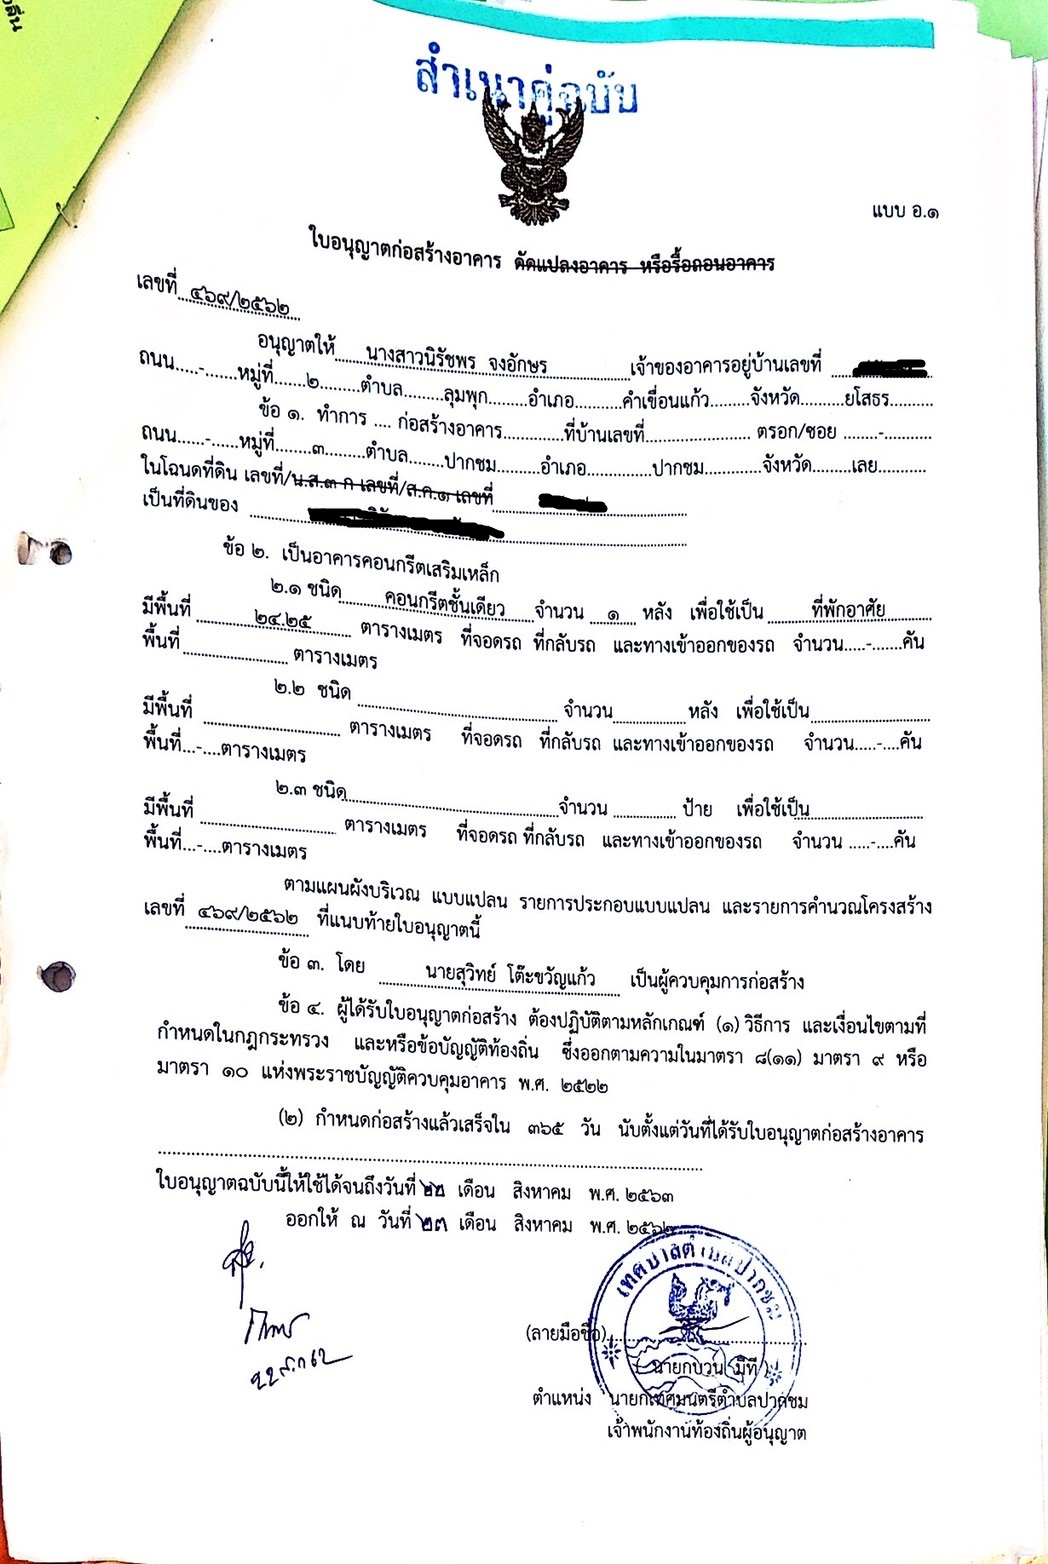 สำเนาคู่ฉบับ
แบบ อ.๑
ใบอนุญาตก่อสร้างอาคาร ดัดแปลงอาคาร หรือรื้อถอนอาคาร
เลขที่ ๔๖๙/๒๕๖๒
อนุญาตให้......นางสาวนิรัชพร จงอักษร..................เจ้าของอาคารอยู่บ้านเลขที่
ถนน.....-......หมู่ที่......๒........ตำบล........ลุมพุก........อำเภอ..........คำเขื่อนแก้ว.........จังหวัด..........ยโสธร..........
ข้อ ๑. ทำการ .... ก่อสร้างอาคาร.............ที่บ้านเลขที่....................... ตรอก/ซอย ........-...........
ถนน.....-......หมู่ที่........๓........ตำบล........ปากชม.........อำเภอ..............ปากชม............จังหวัด........เลย...........
ในโฉนดที่ดิน เลขที่/น.ส.๓ ก เลขที่/ส.ค.๑ เลขที่
เป็นที่ดินของ
ข้อ ๒. เป็นอาคารคอนกรีตเสริมเหล็ก
๒.๑ ชนิด คอนกรีตชั้นเดียว จำนวน ๑ หลัง เพื่อใช้เป็น ที่พักอาศัย
มีพื้นที่ ๒๔.๒๕ ตารางเมตร ที่จอดรถ ที่กลับรถ และทางเข้าออกของรถ จำนวน.....-.......คัน
พื้นที่ ........................ ตารางเมตร
๒.๒ ชนิด ........................ จำนวน...............หลัง เพื่อใช้เป็น........................
มีพื้นที่ ........................ ตารางเมตร ที่จอดรถ ที่กลับรถ และทางเข้าออกของรถ จำนวน.....-....คัน
พื้นที่...-....ตารางเมตร
๒.๓ ชนิด........................จำนวน ............. ป้าย เพื่อใช้เป็น........................
มีพื้นที่ ........................ ตารางเมตร ที่จอดรถ ที่กลับรถ และทางเข้าออกของรถ จำนวน .....-....คัน
พื้นที่...-....ตารางเมตร
ตามแผนผังบริเวณ แบบแปลน รายการประกอบแบบแปลน และรายการคำนวณโครงสร้าง
เลขที่ ๔๖๙/๒๕๖๒ ที่แนบท้ายใบอนุญาตนี้
ข้อ ๓. โดย นายสุวิทย์ โต๊ะขวัญแก้ว เป็นผู้ควบคุมการก่อสร้าง
ข้อ ๔. ผู้ได้รับใบอนุญาตก่อสร้าง ต้องปฏิบัติตามหลักเกณฑ์ (๑) วิธีการ และเงื่อนไขตามที่
กำหนดในกฎกระทรวง และหรือข้อบัญญัติท้องถิ่น ซึ่งออกตามความในมาตรา ๘(๑๑) มาตรา ๙ หรือ
มาตรา ๑๐ แห่งพระราชบัญญัติควบคุมอาคาร พ.ศ. ๒๕๒๒
(๒) กำหนดก่อสร้างแล้วเสร็จใน ๓๖๕ วัน นับตั้งแต่วันที่ได้รับใบอนุญาตก่อสร้างอาคาร
ใบอนุญาตฉบับนี้ให้ใช้ได้จนถึงวันที่ ๒๒ เดือน สิงหาคม พ.ศ. ๒๕๖๓
ออกให้ ณ วันที่ ๒๓ เดือน สิงหาคม พ.ศ. ๒๕๖๒
เทศบาลตำบลปากชม
(ลายมือชื่อ)
ตำแหน่ง นายกเทศมนตรีตำบลปากชม
เจ้าพนักงานท้องถิ่นผู้อนุญาต